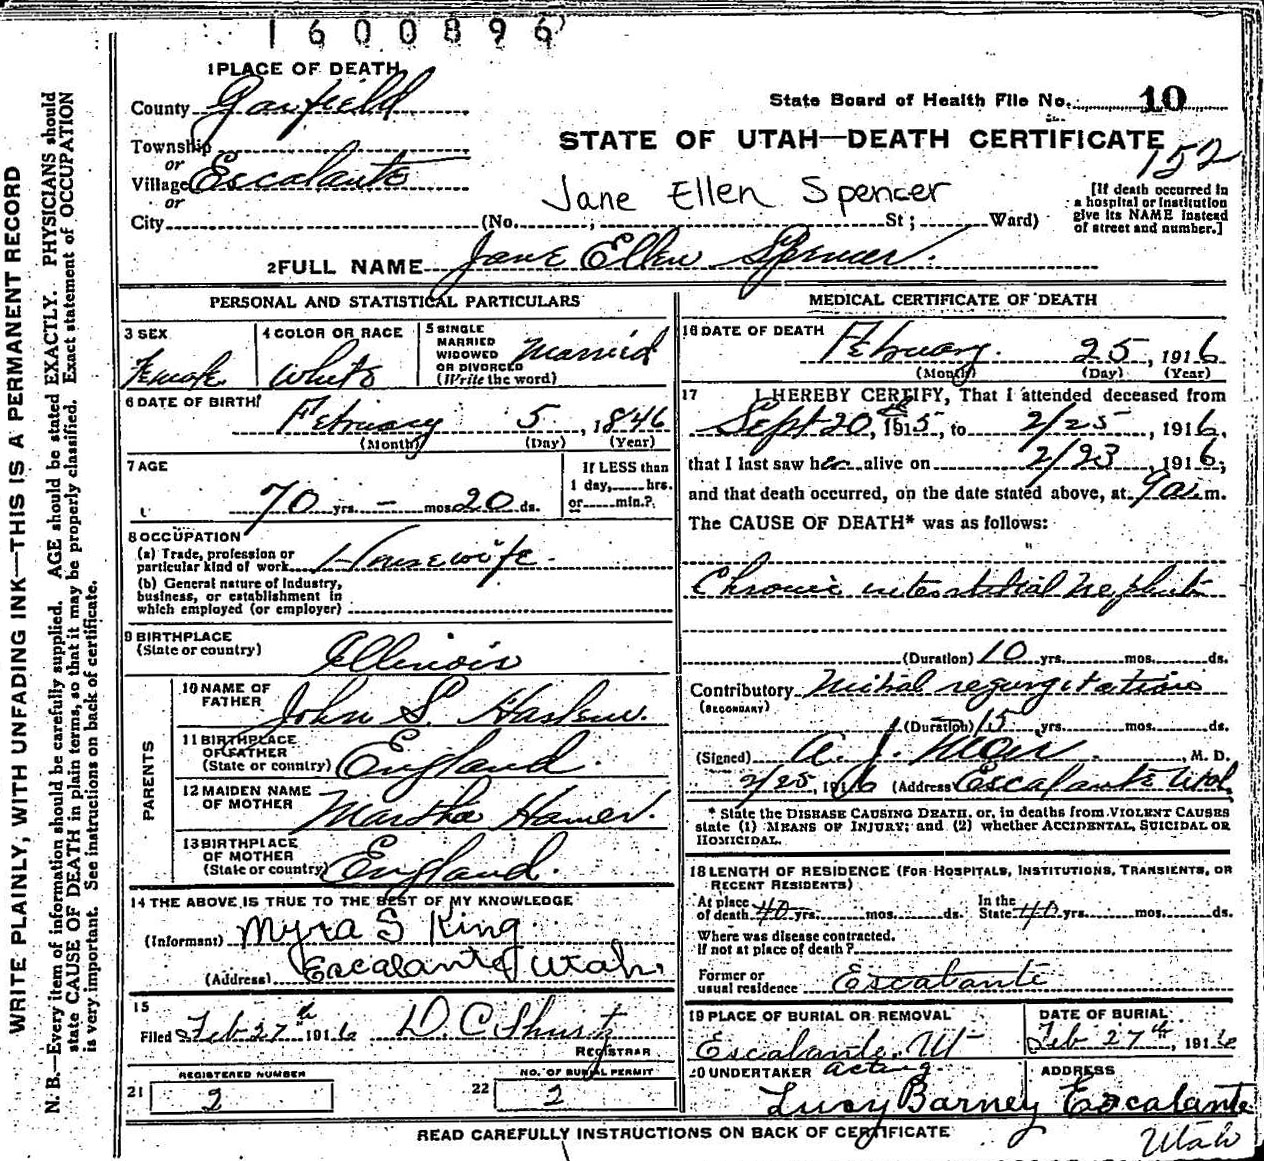 1600896
1 PLACE OF DEATH
County Garfield
State Board of Health File No. 10
Township
or
Village Escalante
or
City (No. St; Ward)
STATE OF UTAH—DEATH CERTIFICATE
152
Jane Ellen Spencer
[If death occurred in
a hospital or institution
give its NAME instead
of street and number.]
2 FULL NAME Jane Ellen Spencer.
PERSONAL AND STATISTICAL PARTICULARS
3 SEX
Female
4 COLOR OR RACE
White
5 SINGLE
MARRIED
WIDOWED
OR DIVORCED
(Write the word)
Married
6 DATE OF BIRTH
February 5, 1846
(Month) (Day) (Year)
7 AGE
70 yrs. — mos. 20 ds.
If LESS than
1 day, hrs.
or min.?
8 OCCUPATION
(a) Trade, profession or
particular kind of work Housewife
(b) General nature of industry,
business, or establishment in
which employed (or employer)
9 BIRTHPLACE
(State or country) Illinois
PARENTS
10 NAME OF
FATHER John S.
11 BIRTHPLACE
OF FATHER
(State or country) England.
12 MAIDEN NAME
OF MOTHER Martha Hamer.
13 BIRTHPLACE
OF MOTHER
(State or country) England.
14 THE ABOVE IS TRUE TO THE BEST OF MY KNOWLEDGE
(Informant) Myra S King
(Address) Escalante Utah.
15
Filed Feb 27th 1916 D. C. Shurtz
REGISTRAR
REGISTERED NUMBER
21 2
NO. OF BURIAL PERMIT
22 2
MEDICAL CERTIFICATE OF DEATH
16 DATE OF DEATH
February 25, 1916
(Month) (Day) (Year)
17 I HEREBY CERTIFY, That I attended deceased from
Sept 20th, 1915, to 2/25, 1916,
that I last saw her alive on 2/23, 1916,
and that death occurred, on the date stated above, at 9 a.m.
The CAUSE OF DEATH* was as follows:
Chronic interstitial Nephritis
(Duration) 10 yrs. mos. ds.
Contributory Mitral regurgitation
(SECONDARY)
(Duration) 15 yrs. mos. ds.
(Signed) M. D.
2/25, 1916 (Address) Escalante Utah
* State the DISEASE CAUSING DEATH, or, in deaths from VIOLENT CAUSES
state (1) MEANS OF INJURY; and (2) whether ACCIDENTAL, SUICIDAL OR
HOMICIDAL.
18 LENGTH OF RESIDENCE (FOR HOSPITALS, INSTITUTIONS, TRANSIENTS, OR
RECENT RESIDENTS)
At place
of death 40 yrs. mos. ds. In the
State 40 yrs. mos. ds.
Where was disease contracted.
If not at place of death?
Former or
usual residence Escalante
19 PLACE OF BURIAL OR REMOVAL
Escalante, Ut
DATE OF BURIAL
Feb 27th, 1916
20 UNDERTAKER acting
Lucy Barney
ADDRESS
Escalante
Utah
READ CAREFULLY INSTRUCTIONS ON BACK OF CERTIFICATE
WRITE PLAINLY, WITH UNFADING INK—THIS IS A PERMANENT RECORD
N. B.—Every item of information should be carefully supplied. AGE should be stated EXACTLY. PHYSICIANS should
state CAUSE OF DEATH in plain terms, so that it may be properly classified. Exact statement of OCCUPATION
is very important. See instructions on back of certificate.